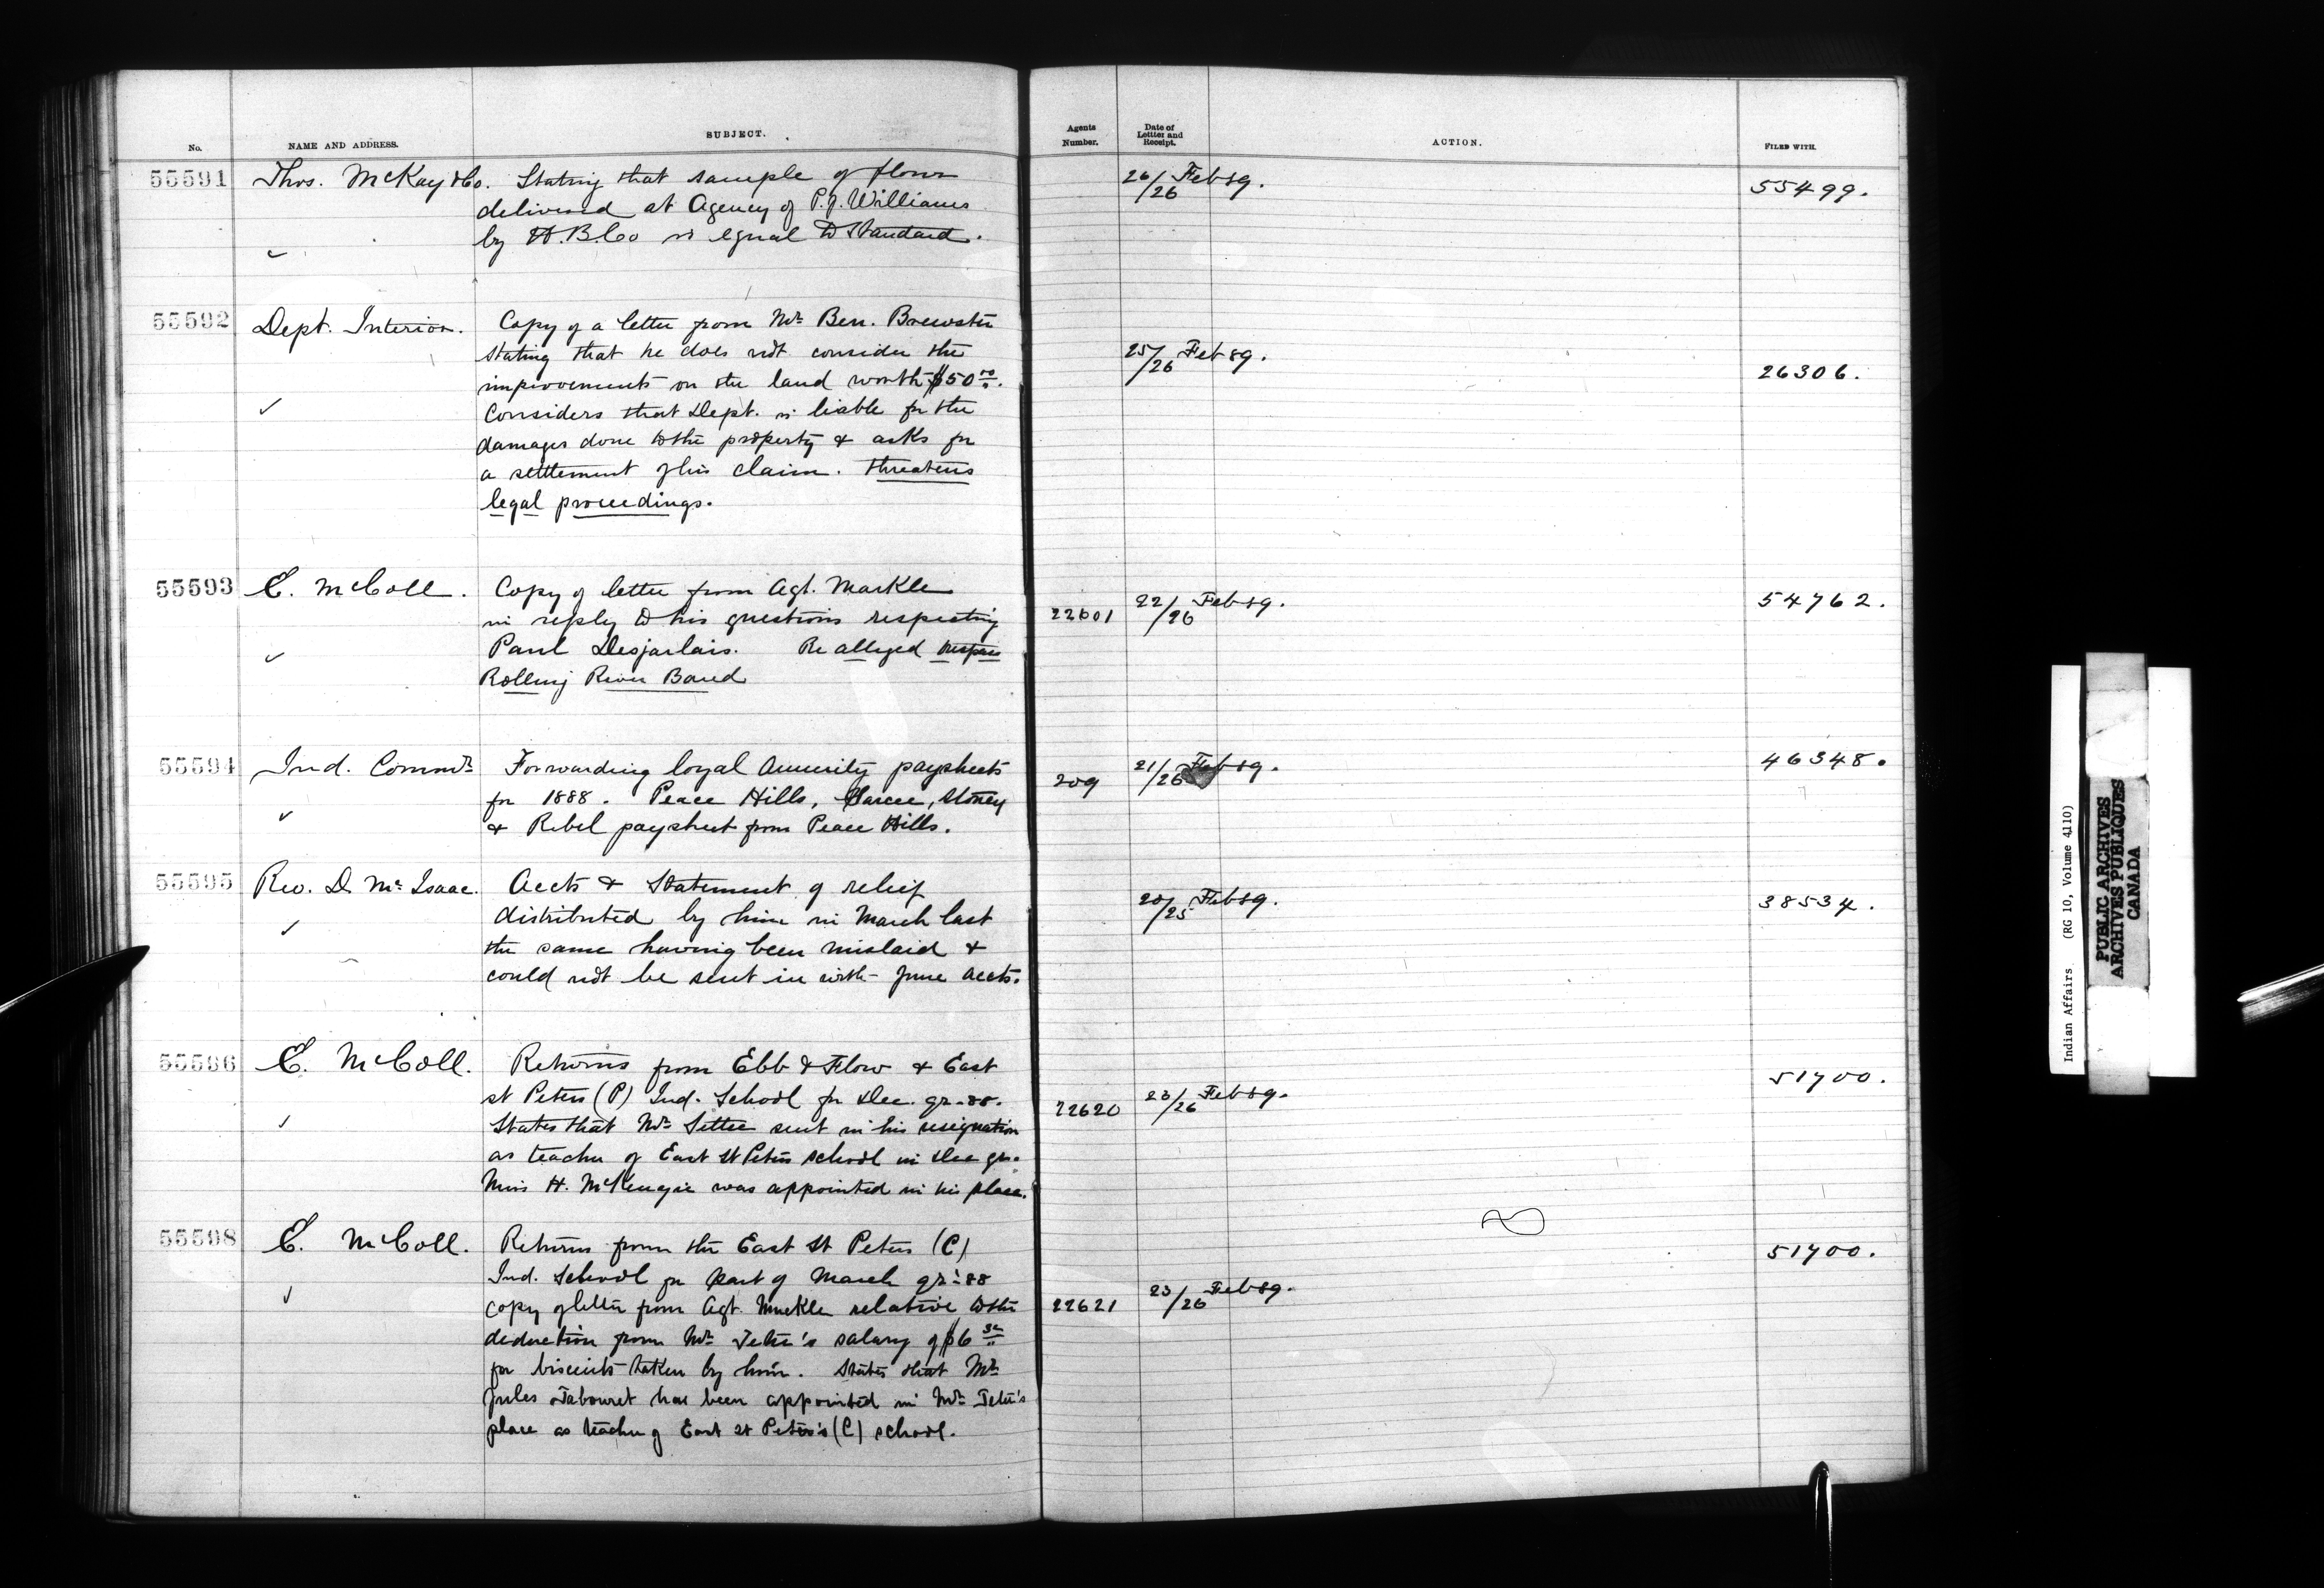 No. NAME AND ADDRESS. SUBJECT. Agents Number. Date of Letter and Receipt. ACTION. FILED WITH.
55591 Thos. McKay & Co. Stating that sample of flour 26/26 Feb 89. 55499.
delivered at Agency of P.J. Williams
by H.B.Co is equal to Standard.
55592 Dept. Interior. Copy of a letter from Mr. Ben. Brewster
stating that he does not consider the 25/26 Feb 89.
improvements on the land worth $50 00. 26306.
Considers that Dept. is liable for the
damages done to the property & asks for
a settlement of his claim. threatens
legal proceedings.
55593 E. McColl. Copy of letter from Agt. Markle 22/26 Feb 89. 54762.
in reply to his questions respecting 22601
Paul Desjarlais. Re alleged
Rolling River Band
55594 Ind. Commr. Forwarding loyal Annuity paysheets 209 21/26 Feb 89. 46348.
for 1888. Peace Hills, Sarcee, Stoney
& Rebel paysheet from Peace Hills.
55595 Rev. D. McIsaac. Accts & Statement of relief 20/25 Feb 89. 38534.
distributed by him in March last
the same having been mislaid &
could not be sent in with June accts.
55596 E. McColl. Returns from Ebb & Flow & East 51700.
St Peters (P) Ind. School for Dec. qr. 88. 22620 23/26 Feb 89.
States that Mr. Settee sent in his resignation
as teacher of East St Peters school in Dec qr.
Miss H. McKenzie was appointed in his place.
55598 E. McColl. Returns from the East St Peters (C) 51700.
Ind. School for part of March qr. 88
copy of letter from Agt. Muckle relative to the 22621 23/26 Feb 89.
deduction from Mr. Tetu's salary of $6
for biscuits taken by him. States that Mr.
Jules Tabouret has been appointed in Mr. Tetu's
place as teacher of East St Peter's (C) school.
Indian Affairs (RG 10, Volume 4110)
PUBLIC ARCHIVES
ARCHIVES PUBLIQUES
CANADA